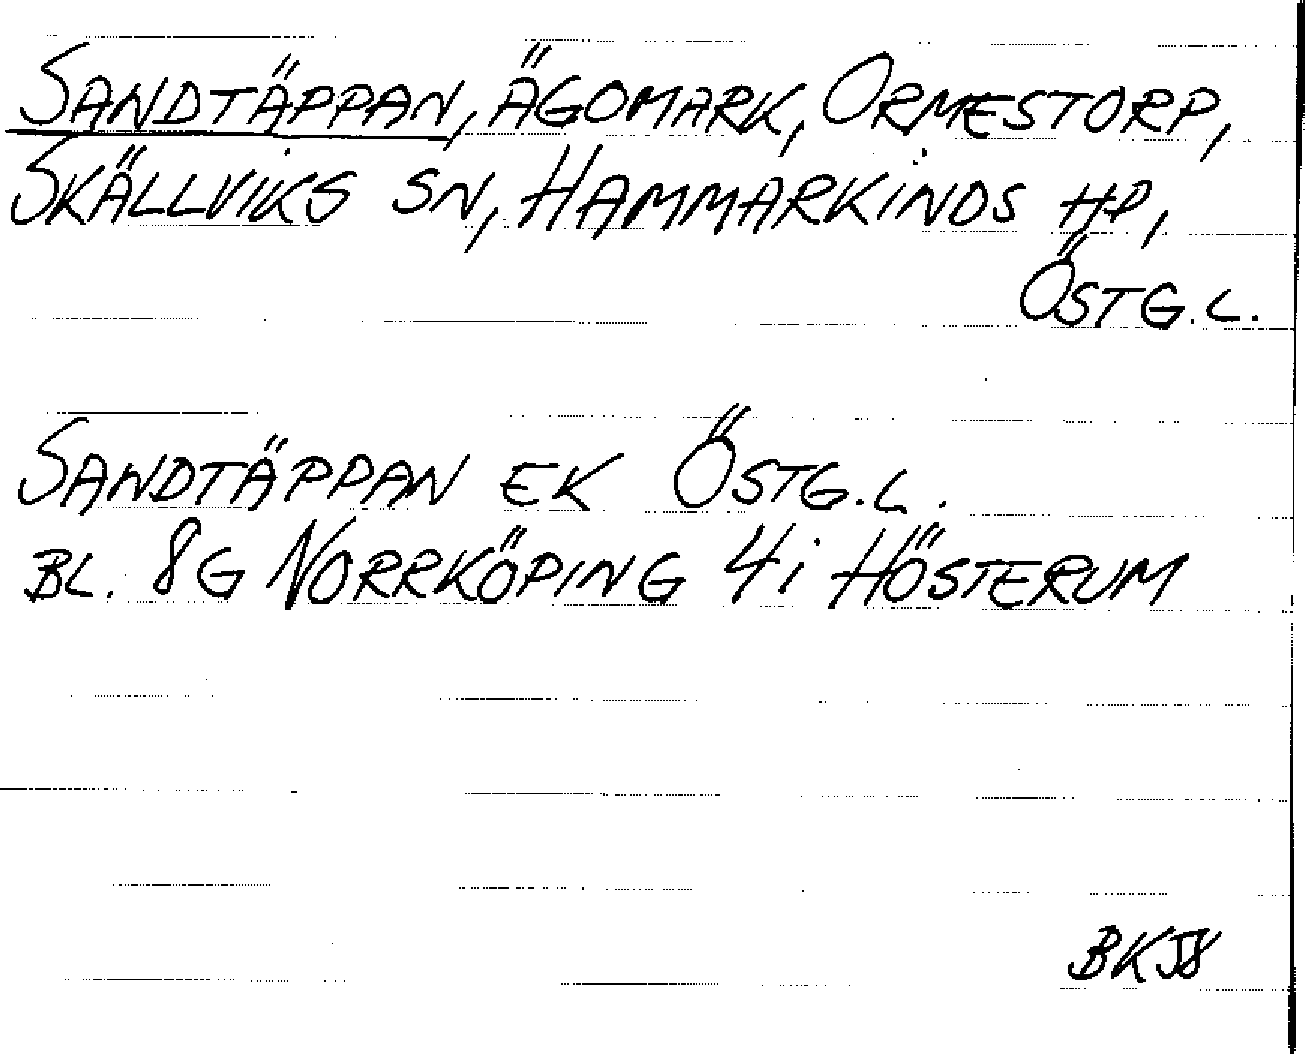 SANDTÄPPAN, ÄGOMARK, ORMESTORP,
SKÄLLVIKS SN, HAMMARKINDS HD,
ÖSTG.L.
SANDTÄPPAN EK ÖSTG.L.
BL. 8G NORRKÖPING 4i HÖSTERUM